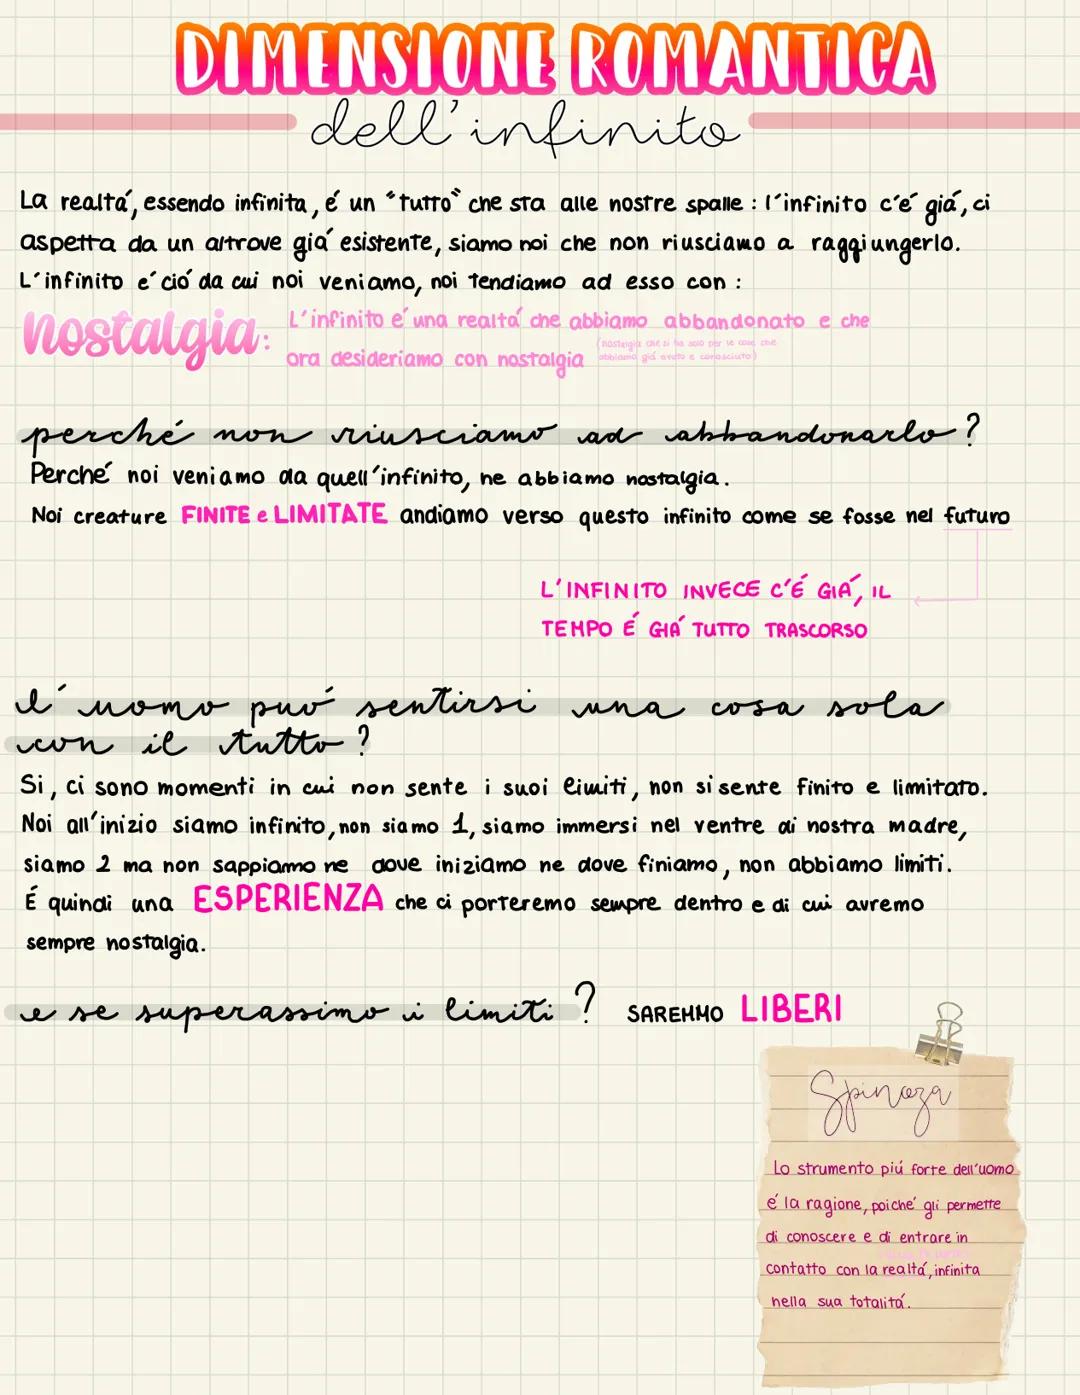 DIMENSIONE ROMANTICA
dell'infinito
La realtá, essendo infinita, é un "tutto" che sta alle nostre spalle : l'infinito c'é giá, ci
aspetta da un altrove giá esistente, siamo noi che non riusciamo a raggiungerlo.
L'infinito é ció da cui noi veniamo, noi tendiamo ad esso con :
nostalgia: L'infinito é una realtá che abbiamo abbandonato e che
ora desideriamo con nostalgia
(nostalgia che si ha solo per le cose che
abbiamo giá avuto e conosciuto)
perché non riusciamo ad abbandonarlo?
Perché noi veniamo da quell'infinito, ne abbiamo nostalgia.
Noi creature FINITE e LIMITATE andiamo verso questo infinito come se fosse nel futuro
L'INFINITO INVECE C'É GIÁ, IL
TEMPO É GIÁ TUTTO TRASCORSO
l'uomo puó sentirsi una cosa sola
con il tutto?
Si, ci sono momenti in cui non sente i suoi limiti, non si sente finito e limitato.
Noi all'inizio siamo infinito, non siamo 1, siamo immersi nel ventre di nostra madre,
siamo 2 ma non sappiamo ne dove iniziamo ne dove finiamo, non abbiamo limiti.
É quindi una ESPERIENZA che ci porteremo sempre dentro e di cui avremo
sempre nostalgia.
e se superassimo i limiti? SAREMMO LIBERI
Spinoza
Lo strumento piú forte dell'uomo
é la ragione, poiché gli permette
di conoscere e di entrare in
contatto con la realtá, infinita
nella sua totalitá.